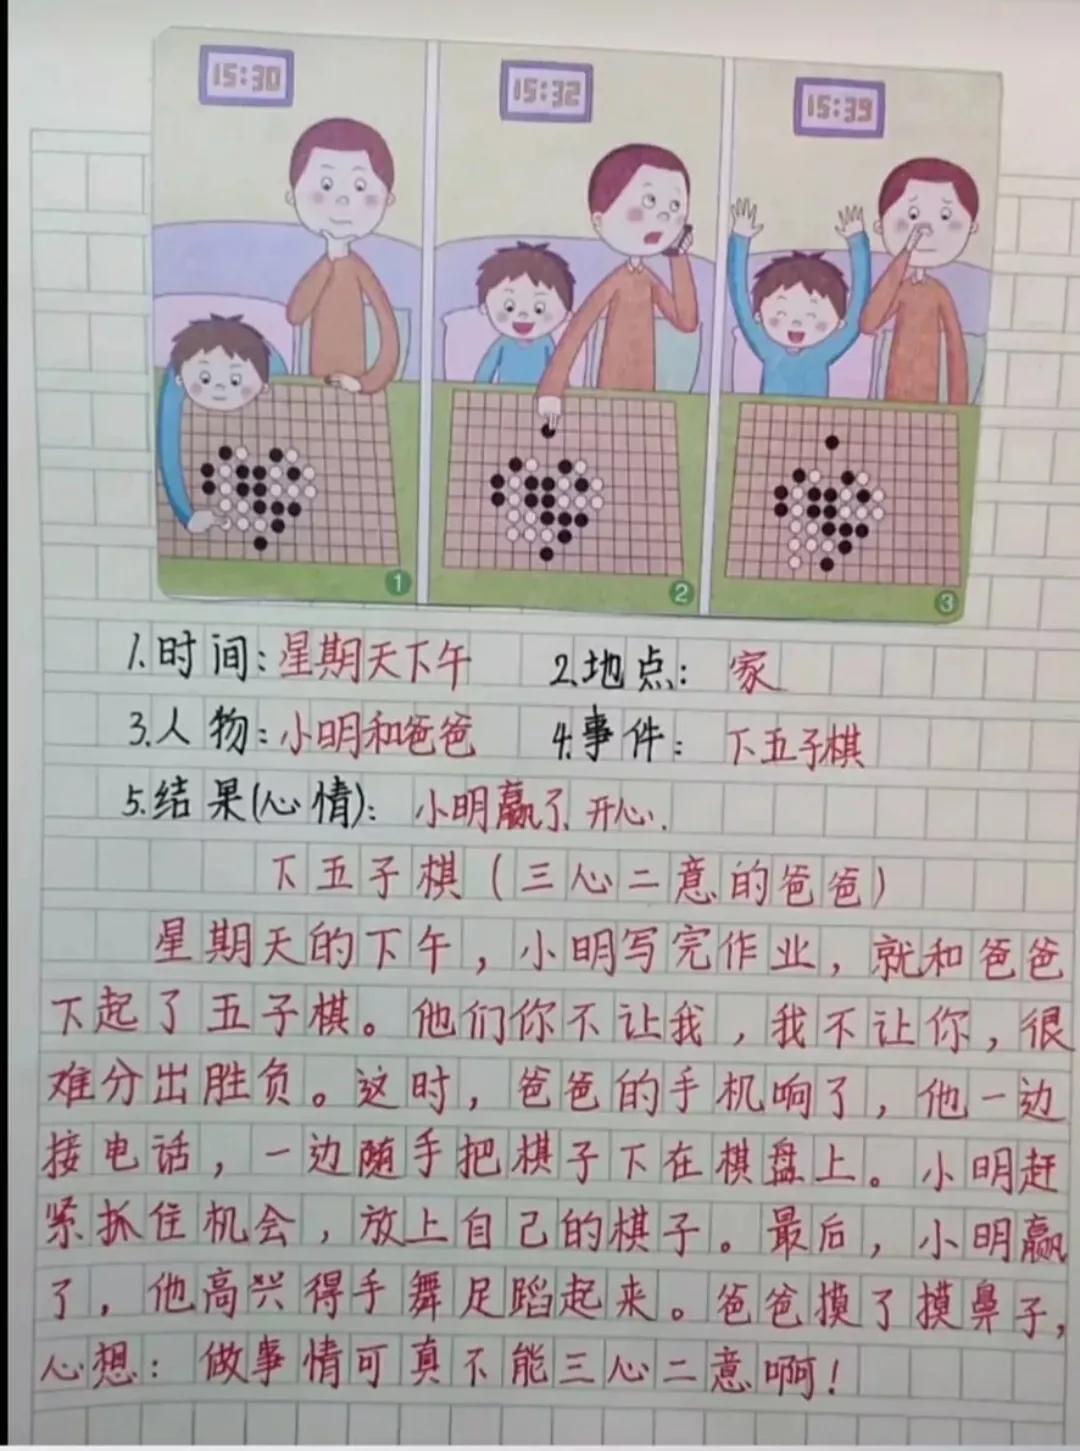 15:30
15:32
15:39
1
2
3
1.时间：星期天下午 2.地点：家
3.人物：小明和爸爸 4.事件：下五子棋
5.结果(心情)：小明赢了、开心.
下五子棋（三心二意的爸爸）
星期天的下午，小明写完作业，就和爸爸
下起了五子棋。他们你不让我，我不让你，很
难分出胜负。这时，爸爸的手机响了，他一边
接电话，一边随手把棋子下在棋盘上。小明赶
紧抓住机会，放上自己的棋子。最后，小明赢
了，他高兴得手舞足蹈起来。爸爸摸了摸鼻子，
心想：做事情可真不能三心二意啊！